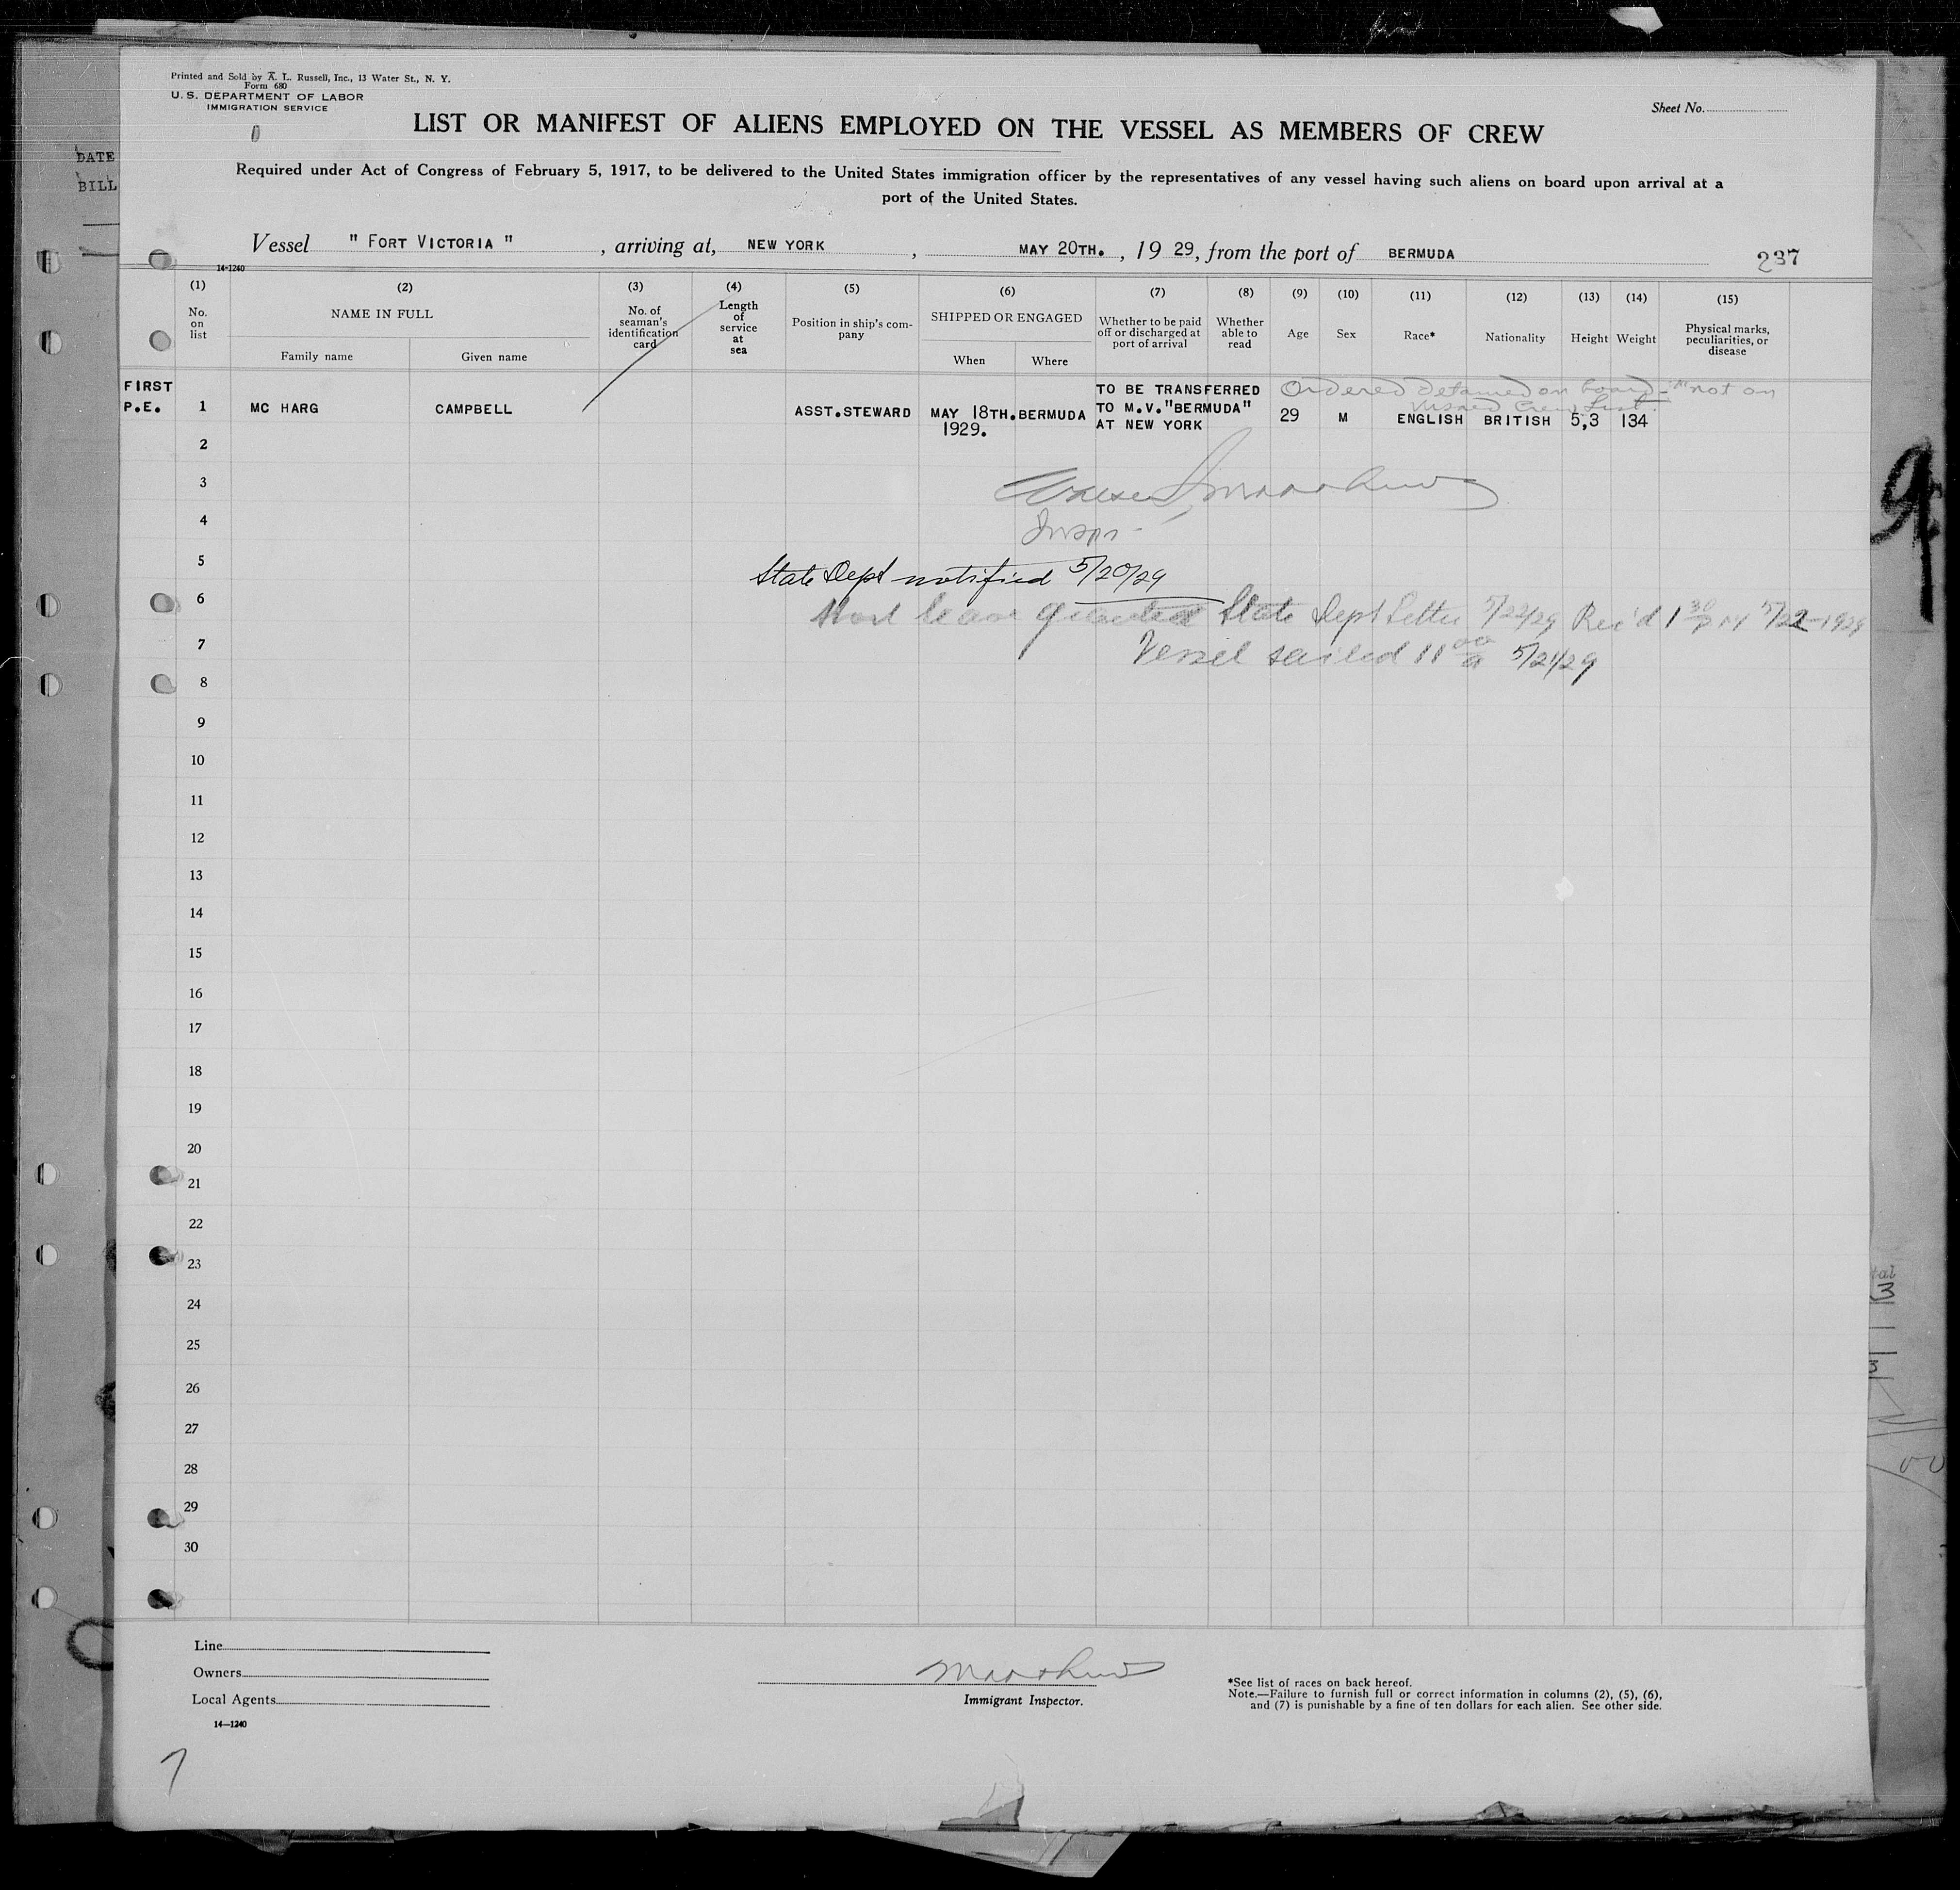 Printed and Sold by A. L. Russell, Inc., 13 Water St., N. Y.
Form 680
U. S. DEPARTMENT OF LABOR
IMMIGRATION SERVICE
Sheet No.
LIST OR MANIFEST OF ALIENS EMPLOYED ON THE VESSEL AS MEMBERS OF CREW
Required under Act of Congress of February 5, 1917, to be delivered to the United States immigration officer by the representatives of any vessel having such aliens on board upon arrival at a
port of the United States.
DATE
BILL
Vessel " FORT VICTORIA " , arriving at, NEW YORK , MAY 20TH. , 19 29, from the port of BERMUDA 237
14-1240
(1) (2) (3) (4) (5) (6) (7) (8) (9) (10) (11) (12) (13) (14) (15)
No. on list
NAME IN FULL
Family name Given name
No. of seaman's identification card
Length of service at sea
Position in ship's company
SHIPPED OR ENGAGED
When Where
Whether to be paid off or discharged at port of arrival
Whether able to read
Age Sex Race* Nationality Height Weight
Physical marks, peculiarities, or disease
FIRST TO BE TRANSFERRED Ordered detained on board - not on
P.E. 1 MC HARG CAMPBELL ASST.STEWARD MAY 18TH. BERMUDA TO M.V."BERMUDA" 29 M ENGLISH BRITISH 5,3 134
visaed Crew List.
1929. AT NEW YORK
2
3
4
Insp.
5
State Dept notified 5/20/29
6
Shore leave granted State Dept Letter 5/22/29 Rec'd 1 30 PM 5/22-1929
7
Vessel sailed 11 00 a 5/21/29
8
9
10
11
12
13
14
15
16
17
18
19
20
21
22
23
24
25
26
27
28
29
30
Line
Owners
Local Agents
14—1240
Immigrant Inspector.
*See list of races on back hereof.
Note.—Failure to furnish full or correct information in columns (2), (5), (6),
and (7) is punishable by a fine of ten dollars for each alien. See other side.
7